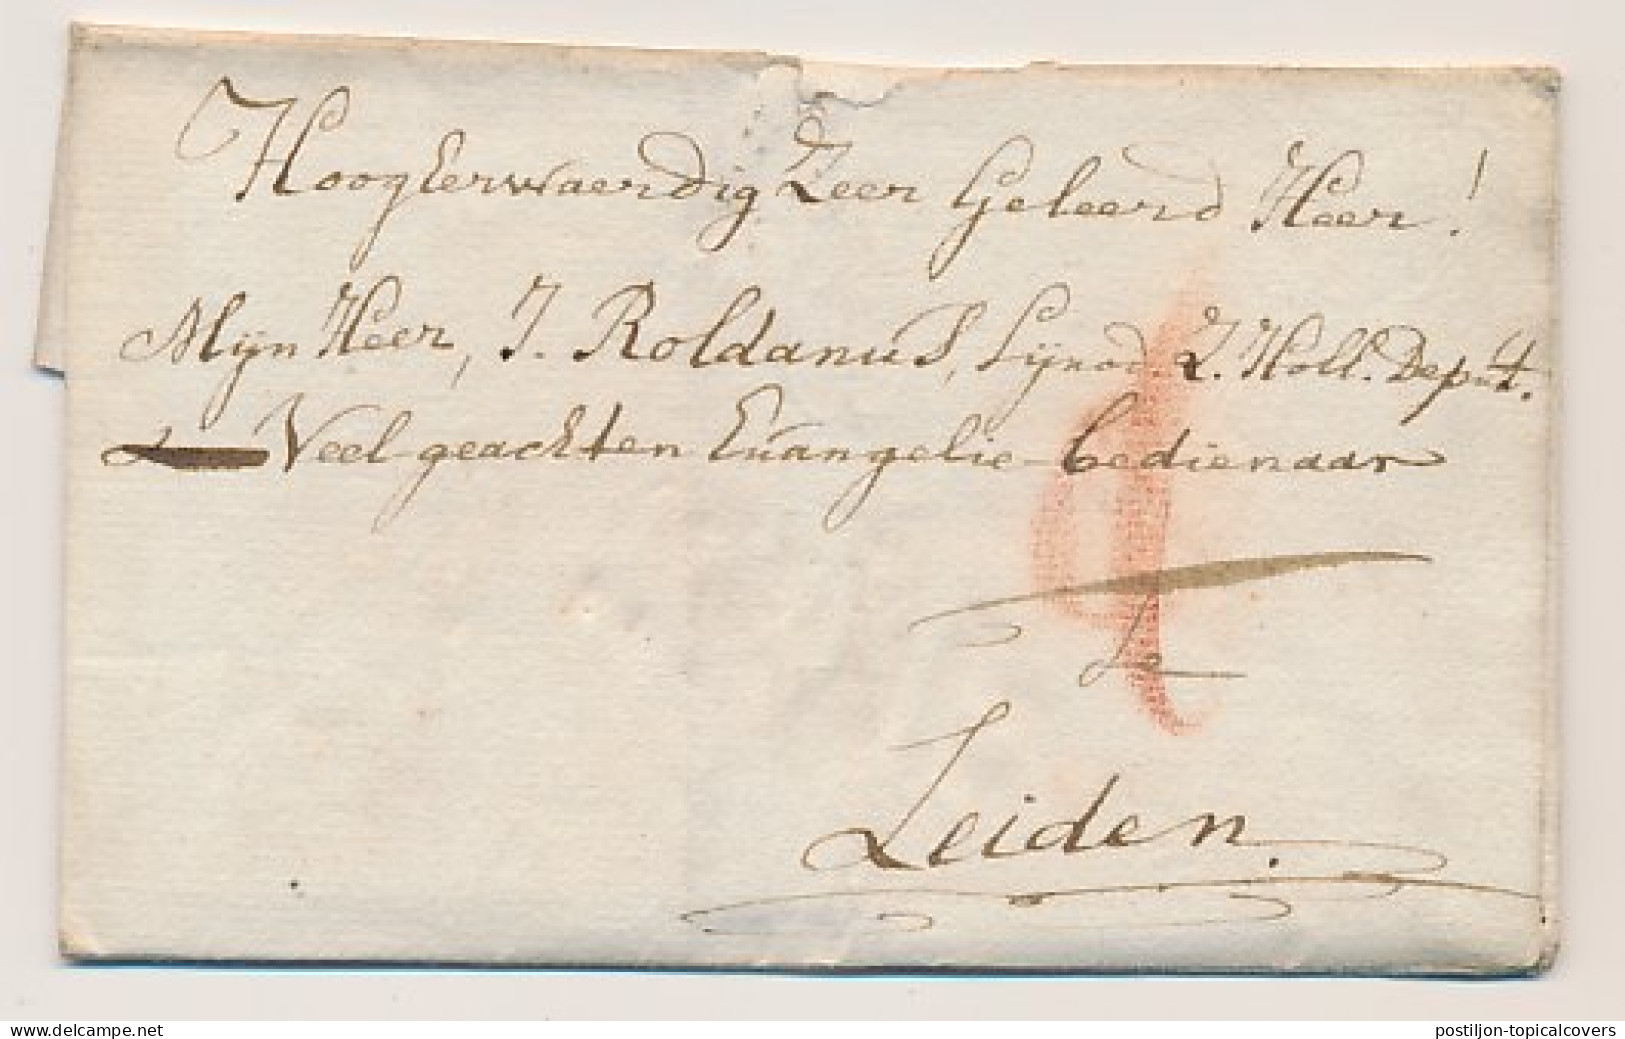 HoogEerwaerdig Zeer Geleerd Heer!
Mijn Heer, J. Roldanus, Sijnod. Z. Holl. Deput.
Veel geachten Euangelie-bedienaar
4
te
Leiden.
www.delcampe.net
postiljon-topicalcovers